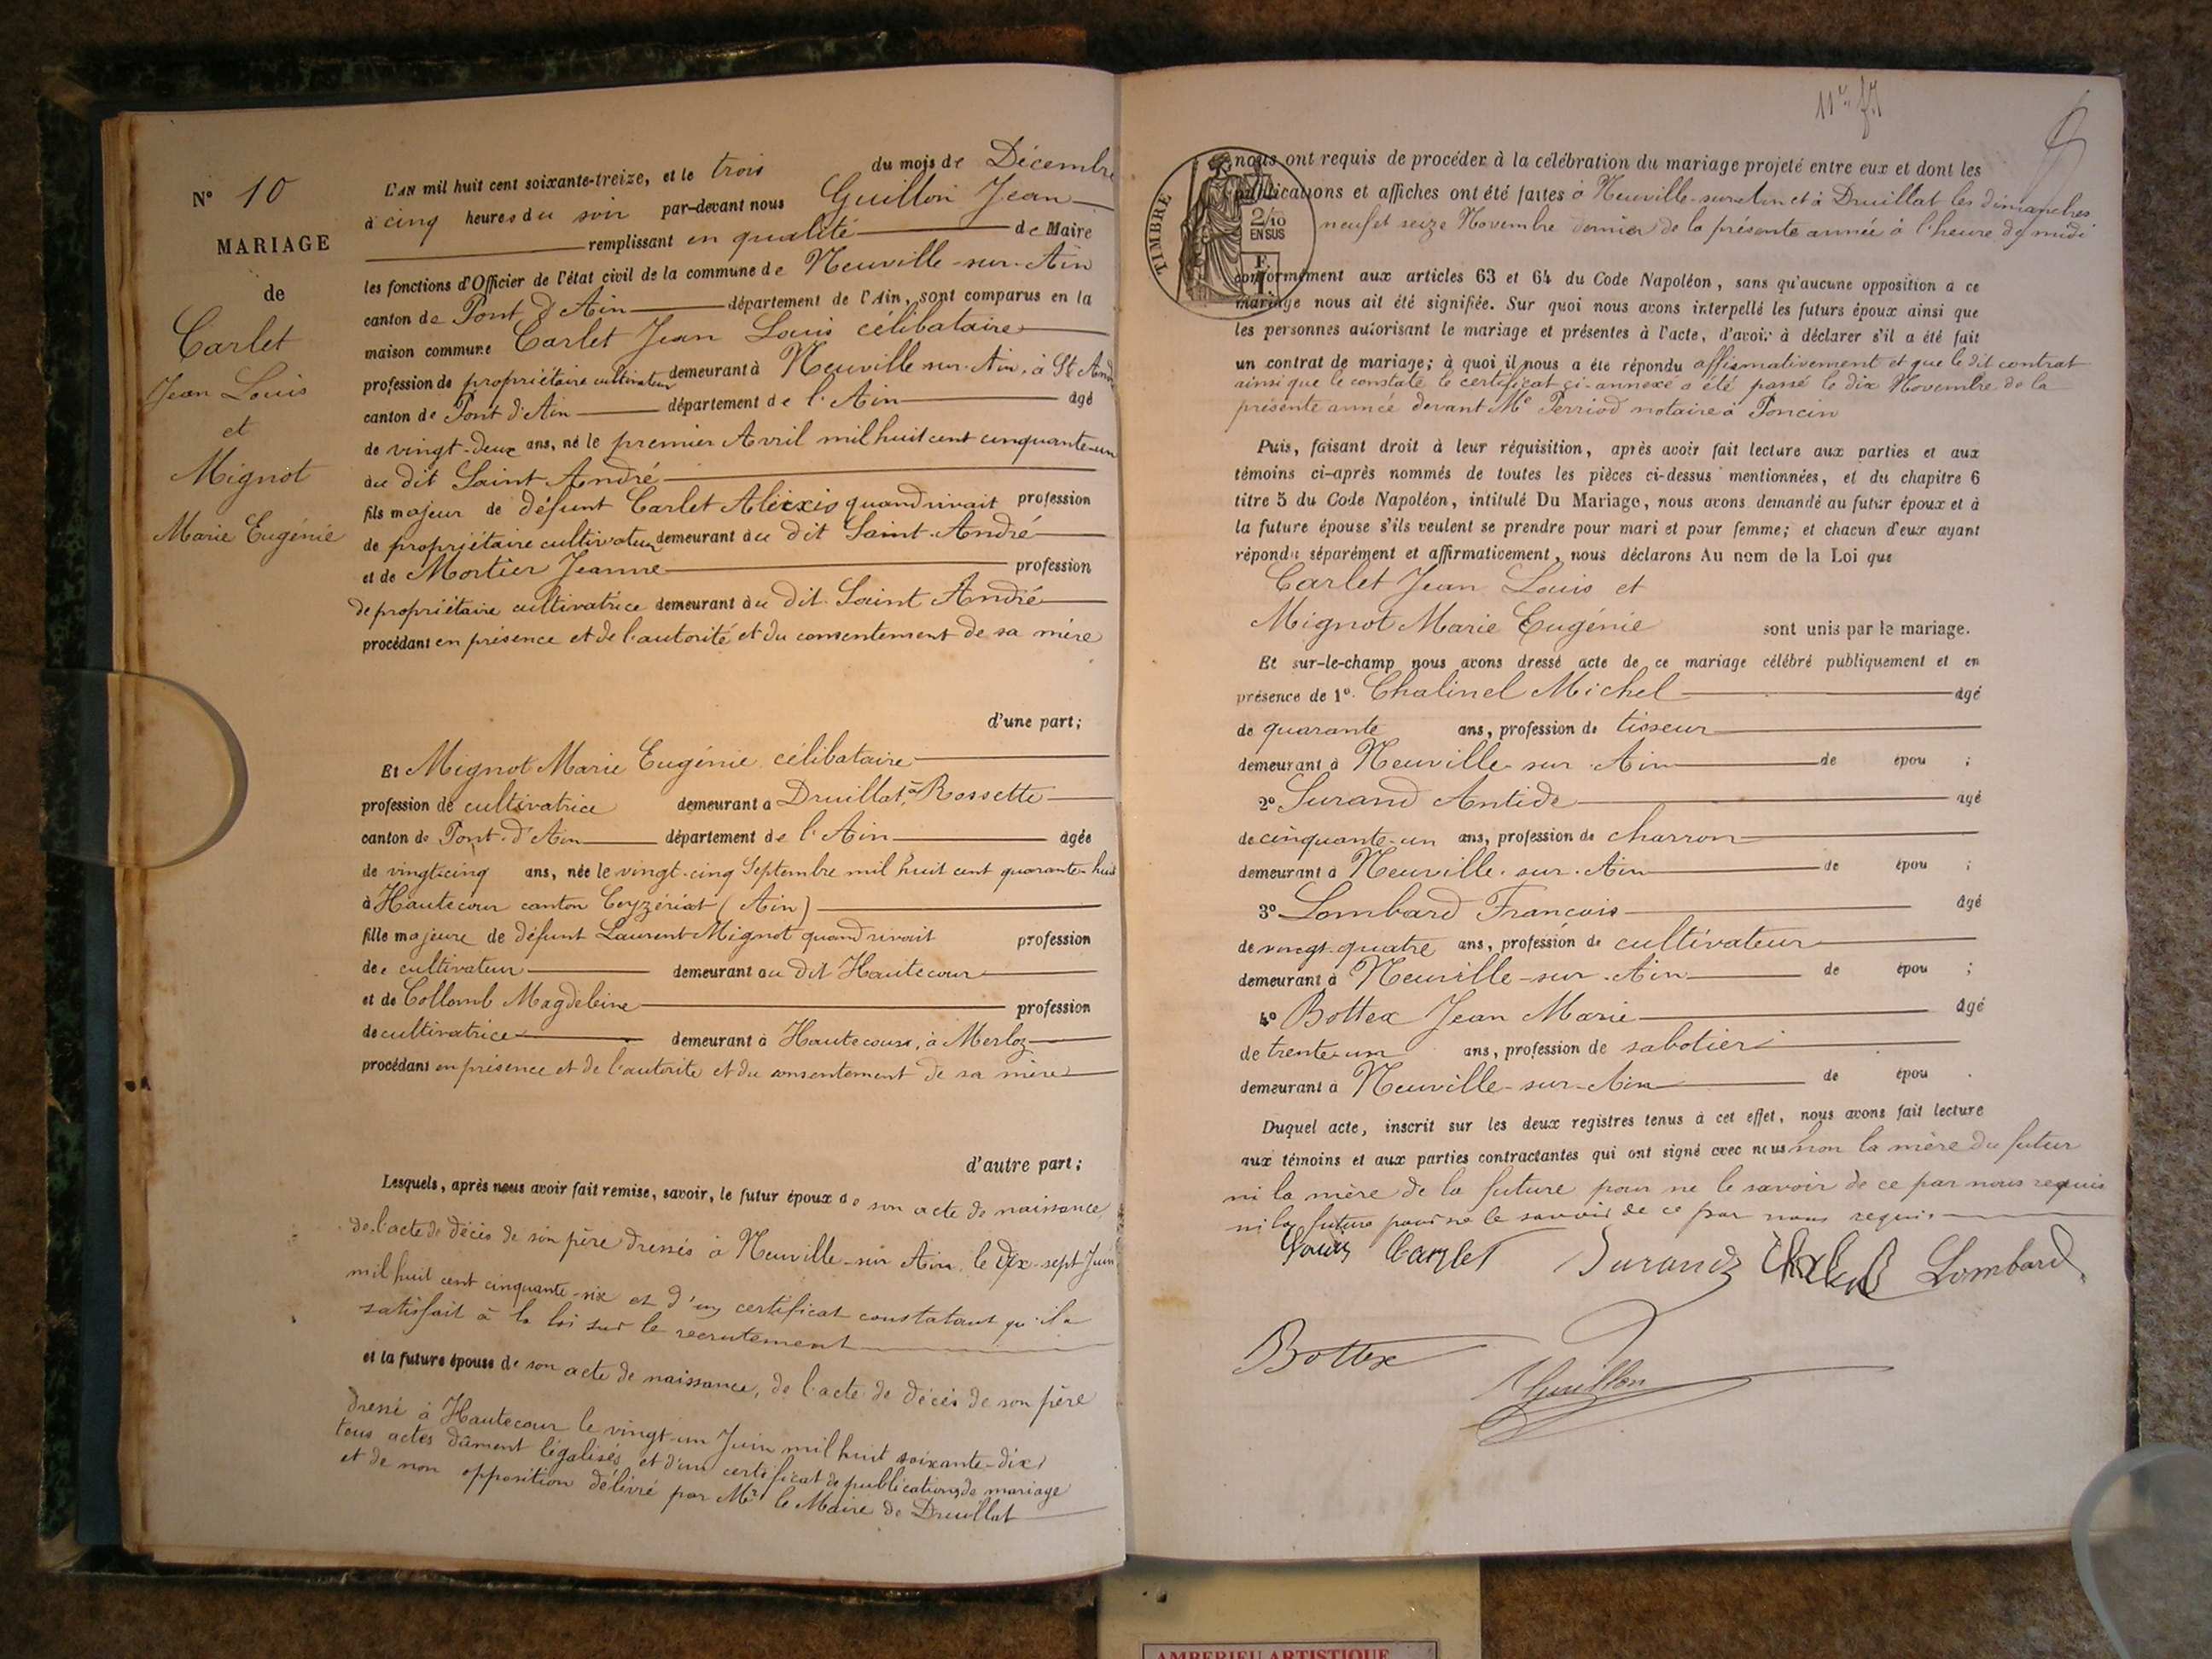 N° 10
MARIAGE
de
Carlet
Jean Louis
et
Mignot
Marie Eugénie
L'AN mil huit cent soixante-treize, et le trois du mois de Décembre
à cinq heures du soir par-devant nous Guillon Jean
remplissant en qualité de Maire
les fonctions d'Officier de l'état civil de la commune de Neuville-sur-Ain
canton de Pont d'Ain département de l'Ain, sont comparus en la
maison commune Carlet Jean Louis célibataire
profession de propriétaire cultivateur demeurant à Neuville sur Ain, à St And
canton de Pont d'Ain département de l'Ain âgé
de vingt-deux ans, né le premier Avril mil huit cent cinquante-un
au dit Saint André
fils majeur de défunt Carlet Alexis quand vivait profession
de propriétaire cultivateur demeurant au dit Saint-André
et de Mortier Jeanne profession
de propriétaire cultivatrice demeurant au dit Saint André
procédant en présence et de l'autorité et du consentement de sa mère
d'une part;
Et Mignot Marie Eugénie célibataire
profession de cultivatrice demeurant à Druillat, à Rossette
canton de Pont-d'Ain département de l'Ain âgée
de vingt-cinq ans, née le vingt-cinq Septembre mil huit cent quarante-huit
à Hautecour canton Ceyzériat (Ain)
fille majeure de défunt Laurent Mignot quand vivait profession
de cultivateur demeurant au dit Hautecour
et de Collomb Magdeleine profession
de cultivatrice demeurant à Hautecour, à Merloz
procédant en présence et de l'autorité et du consentement de sa mère
d'autre part;
Lesquels, après nous avoir fait remise, savoir, le futur époux de son acte de naissance,
de l'acte de décès de son père dressés à Neuville-sur Ain, le dix-sept Juin
mil huit cent cinquante-six et d'un certificat constatant qu'il a
satisfait à la loi sur le recrutement
et la future épouse de son acte de naissance, de l'acte de décès de son père
dressé à Hautecour le vingt-un Juin mil huit soixante-dix,
tous actes dûment légalisés, et d'un certificat de publications de mariage
et de non opposition délivré par Mr le Maire de Druillat
TIMBRE
2/10
EN SUS
nous ont requis de procéder à la célébration du mariage projeté entre eux et dont les
publications et affiches ont été faites à Neuville-sur-Ain et à Druillat les dimanches
neuf et seize Novembre dernier de la présente année à l'heure de midi
conformément aux articles 63 et 64 du Code Napoléon, sans qu'aucune opposition a ce
mariage nous ait été signifiée. Sur quoi nous avons interpellé les futurs époux ainsi que
les personnes autorisant le mariage et présentes à l'acte, d'avoir à déclarer s'il a été fait
un contrat de mariage; à quoi il nous a été répondu affirmativement et que le dit contrat
ainsi que le constate le certificat ci-annexé a été passé le dix Novembre de la
présente année devant Me Perriod notaire à Poncin
Puis, faisant droit à leur réquisition, après avoir fait lecture aux parties et aux
témoins ci-après nommés de toutes les pièces ci-dessus mentionnées, et du chapitre 6
titre 5 du Code Napoléon, intitulé Du Mariage, nous avons demandé au futur époux et à
la future épouse s'ils veulent se prendre pour mari et pour femme; et chacun d'eux ayant
répondu séparément et affirmativement, nous déclarons Au nom de la Loi que
Carlet Jean Louis et
Mignot Marie Eugénie sont unis par le mariage.
Et sur-le-champ nous avons dressé acte de ce mariage célébré publiquement et en
présence de 1° Chalinel Michel âgé
de quarante ans, profession de tisseur
demeurant à Neuville-sur-Ain de épou ;
2° Durand Antide agé
de cinquante-un ans, profession de charron
demeurant à Neuville-sur-Ain de épou ;
3° Lombard François âgé
de vingt-quatre ans, profession de cultivateur
demeurant à Neuville-sur-Ain de épou ;
4° Bottex Jean Marie âgé
de trente-un ans, profession de sabotier
demeurant à Neuville-sur-Ain de épou .
Duquel acte, inscrit sur les deux registres tenus à cet effet, nous avons fait lecture
aux témoins et aux parties contractantes qui ont signé avec nous non la mère du futur
ni la mère de la future pour ne le savoir de ce par nous requis
ni la future pour ne le savoir de ce par nous requis
Louis Carlet Durand Lombard
Bottex
Guillon
AMBERIEU ARTISTIQUE